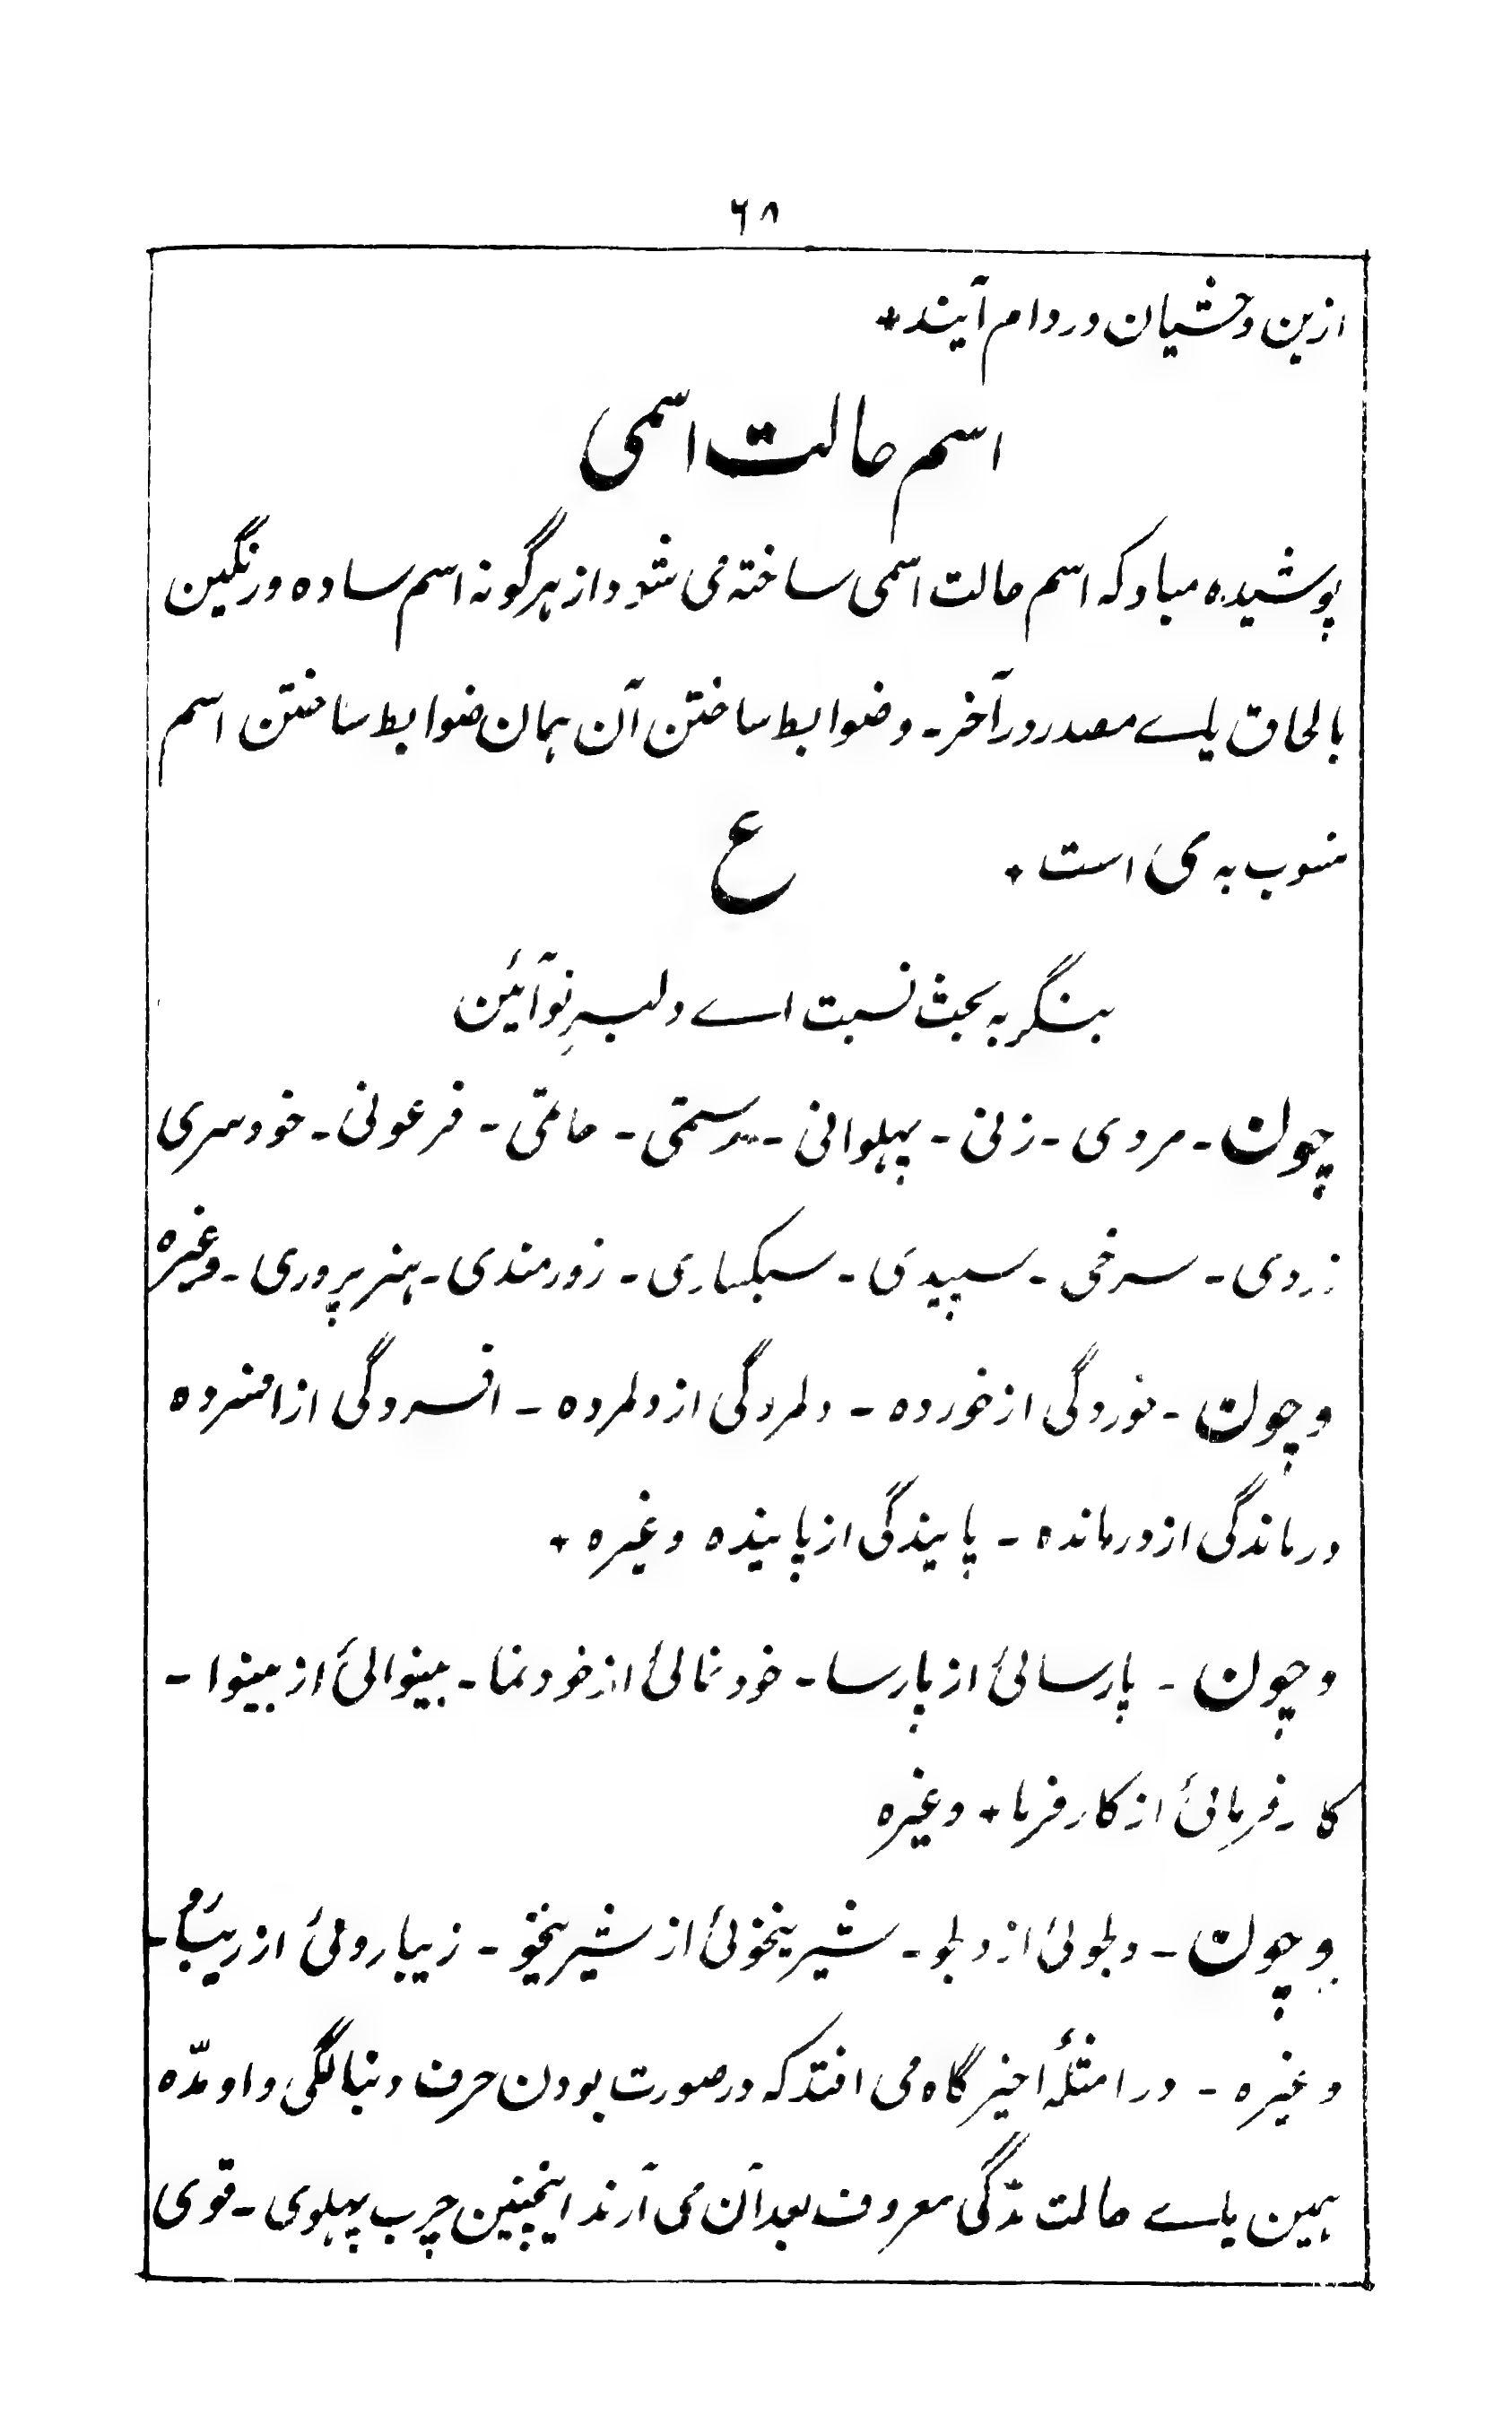 ۶۸
ازین وحشیان در دام آیند٭
اسم حالت اسمی
پوشیده مباد که اسم حالت اسمی ساخته می شود از هر گونه اسم ساده و رنگین
بالحاق یاے مصدر در آخر۔ و ضوابط ساختن آن همان ضوابط ساختن اسم
منسوب به ی است ٭ ع
بنگر به بحث نسبت اے دلبرِ نوآئین
چون ۔ مردی ۔ زنی ۔ پهلوانی ۔ رستمی ۔ حاتمی ۔ فرعونی ۔ خودسری
زردی ۔ سرخی ۔ سپیدی ۔ سبکساری ۔ زورمندی ۔ هنرپروری ۔ وغیره
و چون ۔ خوردگی از خورده ۔ دلمردگی از دلمرده ۔ افسردگی از افسرده
درماندگی از درمانده ۔ پایندگی از پاینده وغیره ٭
و چون ۔ پارسائی از پارسا ۔ خودنمائی از خودنما ۔ بینوائی از بینوا ۔
کارفرمائی از کارفرما ٭ وغیره
و چون ۔ دلجوئی از دلجو ۔ شیرینخوئی از شیرینخو ۔ زیباروئی از زیبارو ۔
وغیره ۔ در امثلهٔ اخیر گاه می افتد که در صورت بودن حرف دنبالگی واو مدّه
همین یاے حالت مدّگی معروف بعد آن می آرند اینچنین چرب پهلوی ۔ قوی